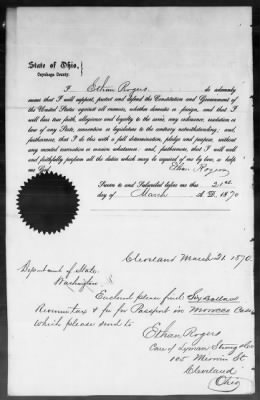 State of Ohio,
Cuyahoga County.
I Ethan Rogers do solemnly
swear that I will support, protect and defend the Constitution and Government of
the United States against all enemies, whether domestic or foreign, and that I
will bear true faith, allegiance and loyalty to the same, any ordinance, resolution or
law of any State, convention or legislature to the contrary notwithstanding; and,
furthermore, that I do this with a full determination, pledge and purpose, without
any mental reservation or evasion whatsoever; and, furthermore, that I will well
and faithfully perform all the duties which may be required of me by law, so help
Ethan Rogers
Sworn to and Subscribed before me this 21st
day of March A. D. 1870
Cleveland March 21 1870.
Department of State,
Washington
Enclosed please find Six Dollars
Revenue & fee for Passport in Morocco Case
which please send to
Ethan Rogers
Care of Lyman
105 Merwin St
Cleveland
Ohio